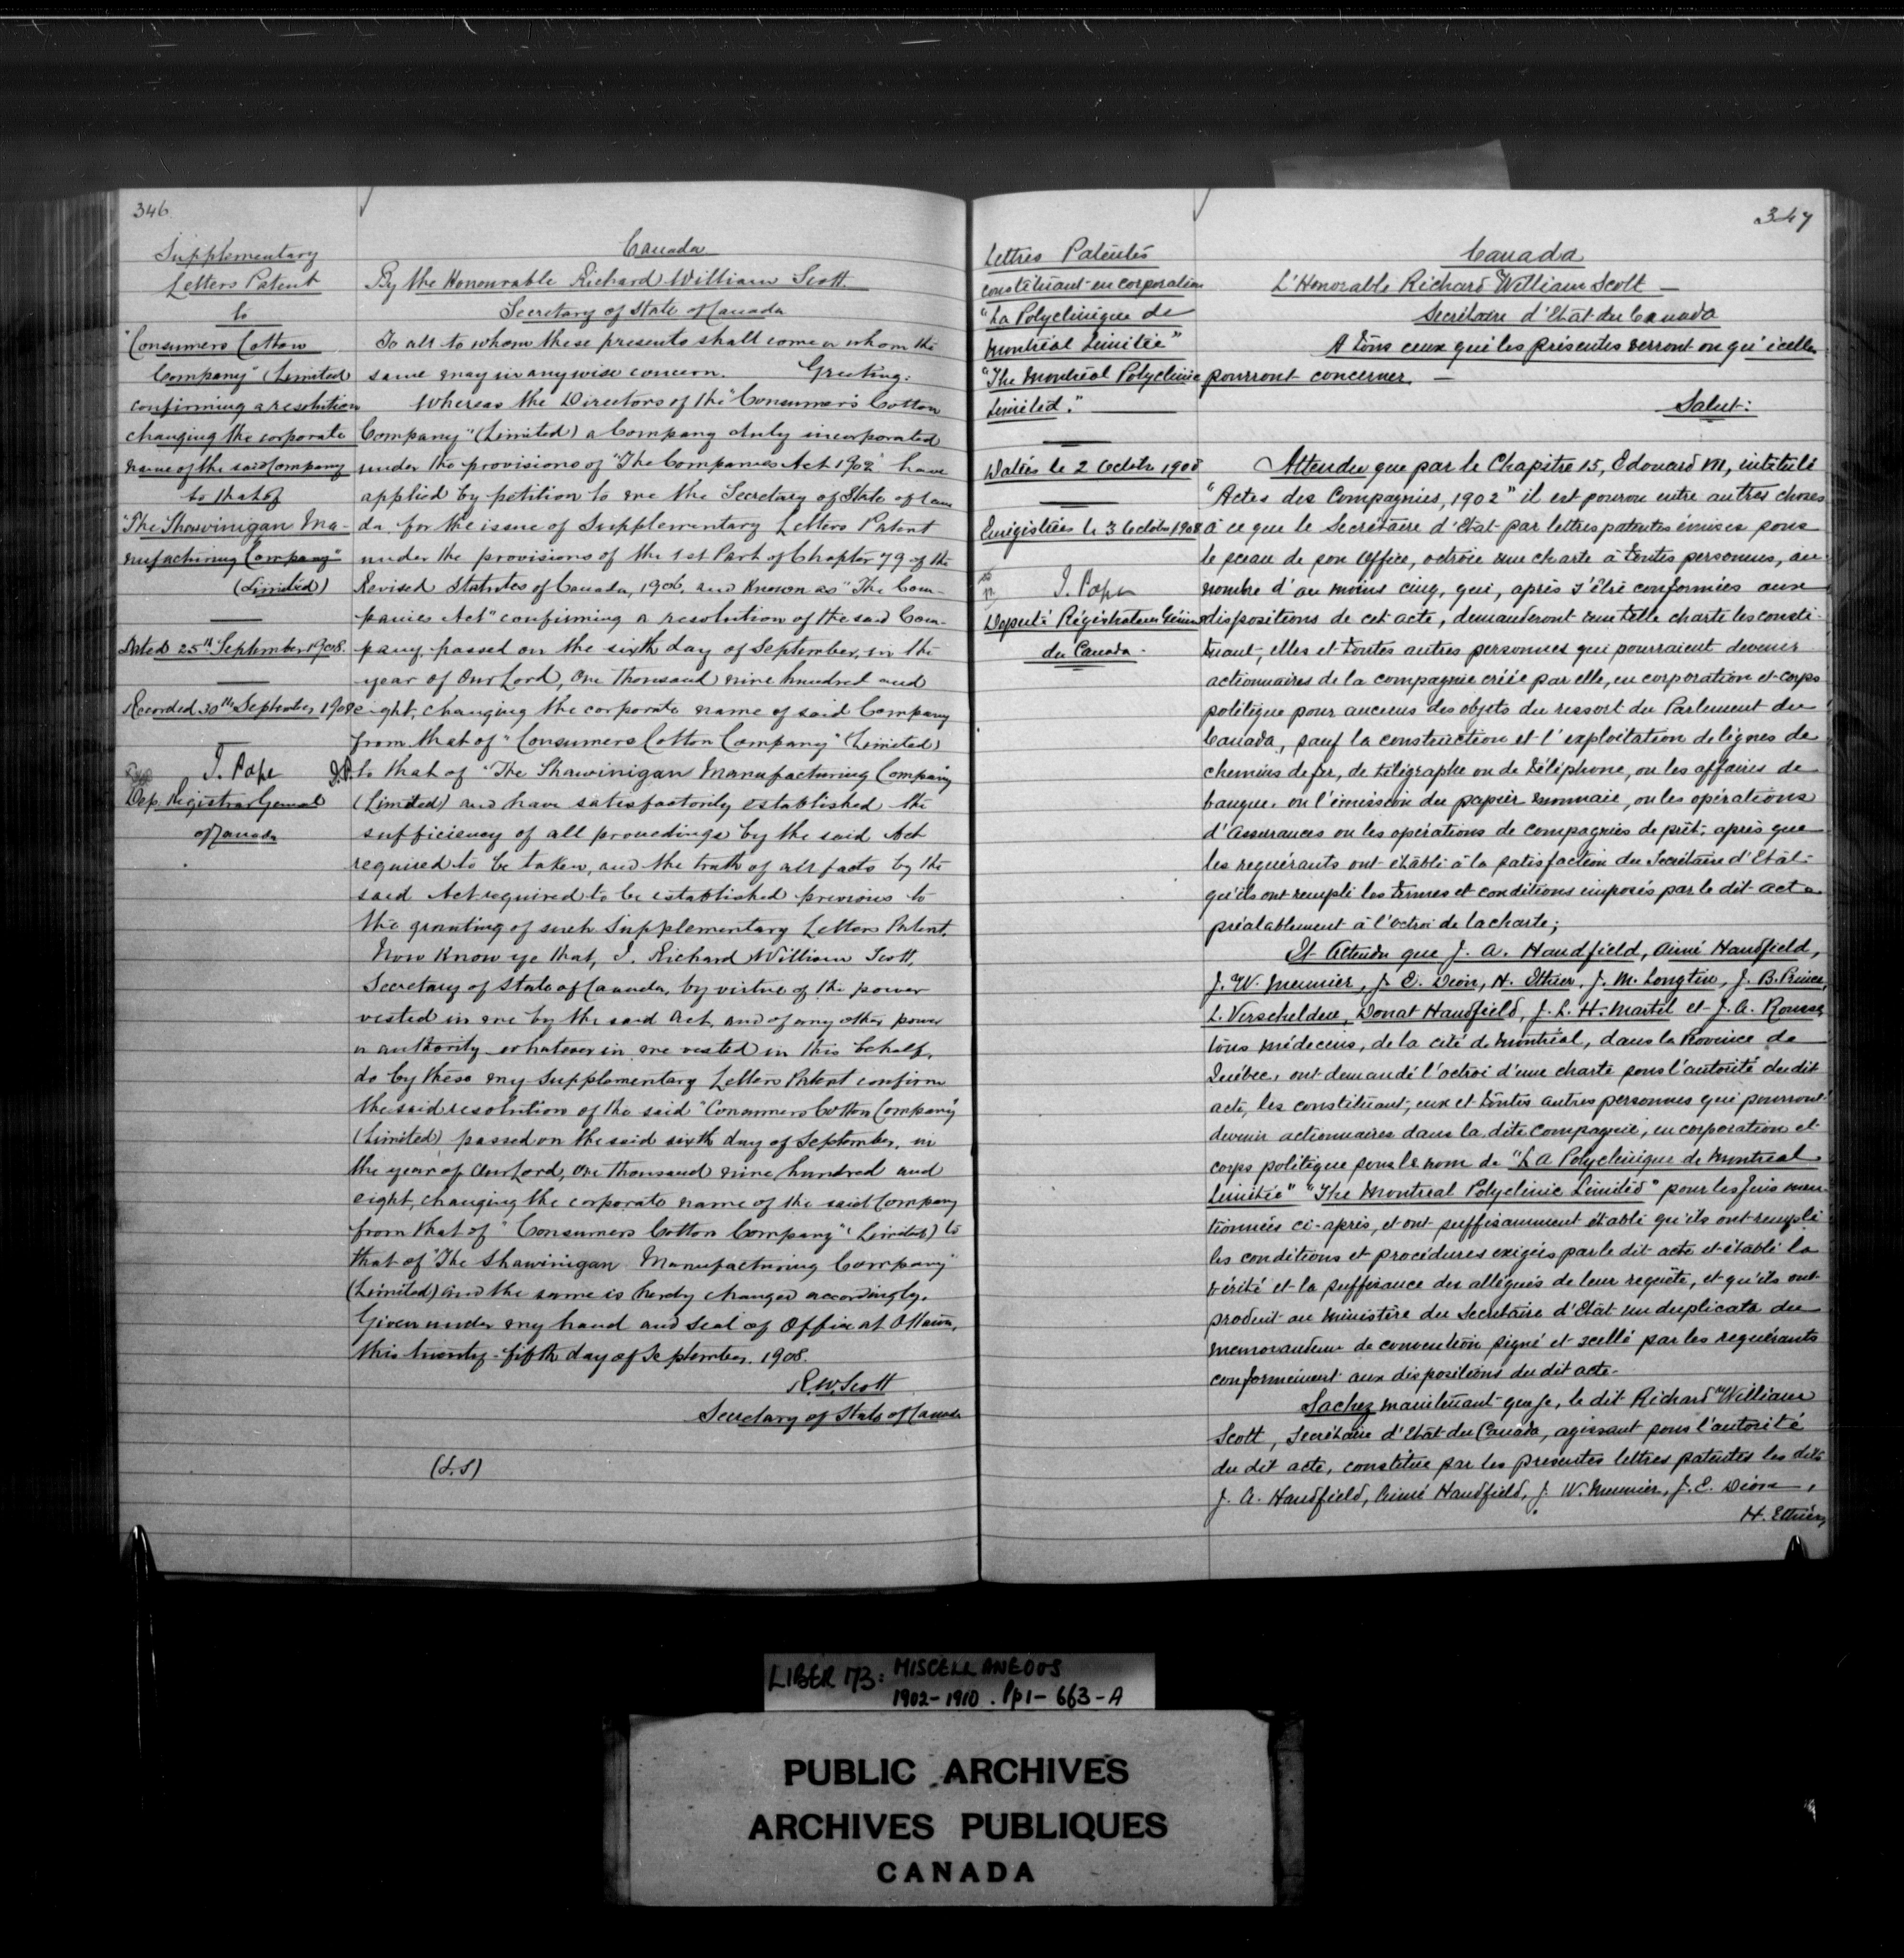 346
Supplementary
Letters Patent
to
"Consumers Cotton
Company" (Limited
confirming a resolution
changing the corporate
name of the said Company
to that of
"The Shawinigan Ma-
nufacturing Company"
(Limited)
Dated 25th September 1908.
Recorded 30th September 1908
J. Pope
Dep. Registrar General
of Canada
Canada
By the Honourable Richard William Scott.
Secretary of State of Canada
To all to whom these presents shall come or whom the
same may in anywise concern. Greeting:
Whereas the Directors of the "Consumers Cotton
Company" (Limited) a Company duly incorporated
under the provisions of "The Companies Act 1902" have
applied by petition to me the Secretary of State of Cana
da for the issue of Supplementary Letters Patent
under the provisions of the 1st Part of Chapter 79 of the
Revised Statutes of Canada, 1906, and Known as "The Com-
panies Act" confirming a resolution of the said Com-
pany, passed on the sixth day of September, in the
year of Our Lord, One thousand nine hundred and
eight, changing the corporate name of said Company
from that of "Consumers Cotton Company" (Limited)
J.P. to that of "The Shawinigan Manufacturing Company
(Limited) and have satisfactorily established the
sufficiency of all proceedings by the said Act
required to be taken, and the truth of all facts by the
said Act required to be established previous to
the granting of such Supplementary Letters Patent.
Now Know ye that, I, Richard William Scott,
Secretary of State of Canada, by virtue of the power
vested in me by the said Act, and of any other power
or authority whatever in me vested in this behalf,
do by these my Supplementary Letters Patent confirm
the said resolution of the said "Consumers Cotton Company"
(Limited) passed on the said sixth day of September, in
the year of Our Lord, One thousand nine hundred and
eight, changing the corporate name of the said Company
from that of "Consumers Cotton Company" (Limited) to
that of "The Shawinigan Manufacturing Company"
(Limited) and the same is hereby changed accordingly.
Given under my hand and Seal of Office at Ottawa,
this twenty-fifth day of September, 1908.
R.W. Scott
Secretary of State of Canada
(L.S)
347
Lettres Patentes
constituant en corporation
"La Polyclinique de
Montréal Limitée"
"The Montreal Polyclinic
Limited."
Datées le 2 Octobre 1908
Enrégistrées le 3 Octobre 1908
J. Pope
Député Régistrateur Général
du Canada.
Canada
L'Honorable Richard William Scott —
Secrétaire d'Etat du Canada
A tous ceux que les présentes verront ou qu'icelles
pourront concerner. —
Salut:
Attendu que par le Chapitre 15, Edouard VII, intitulé
"Actes des Compagnies, 1902" il est pourvu entre autres choses
à ce que le Secrétaire d'Etat par lettres patentes émises sous
le sceau de son Office, octroie une charte à toutes personnes, au
nombre d'au moins cinq, qui, après s'être conformées aux
dispositions de cet acte, demanderont une telle charte les consti-
tuant, elles et toutes autres personnes qui pourraient devenir
actionnaires de la compagnie créée par elle, en corporation et corps
politique pour aucuns des objets du ressort du Parlement du
Canada, sauf la construction et l'exploitation de lignes de
chemins de fer, de télégraphe ou de téléphone, ou les affaires de
banque, ou l'émission du papier monnaie, ou les opérations
d'Assurances ou les opérations de compagnies de prêt; après que
les requérants ont établi à la satisfaction du Secrétaire d'Etat
qu'ils ont rempli les termes et conditions imposés par le dit acte
préalablement à l'octroi de la charte;
Et Attendu que J. A. Handfield, Aimé Handfield,
J. W. Meunier, J. E. Dion, H. Ethier, J. M. Longtin, J. B. Prince,
L. Verschelden, Donat Handfield, J. L. H. Martel et J. A. Rouse,
tous médecins, de la cité de Montréal, dans la Province de
Québec, ont demandé l'octroi d'une charte sous l'autorité du dit
acte, les constituant, eux et toutes autres personnes qui pourront
devenir actionnaires dans la dite compagnie, en corporation et
corps politique sous le nom de "La Polyclinique de Montreal
Limitée" "The Montreal Polyclinic Limited" pour les fins men-
tionnées ci-après, et ont suffisamment établi qu'ils ont rempli
les conditions et procédures exigées par le dit acte et établi la
vérité et la suffisance des allégués de leur requête, et qu'ils ont
produit au Ministère du Secrétaire d'Etat un duplicata du
memorandum de convention signé et scellé par les requérants
conformément aux dispositions du dit acte.
Sachez maintenant que je, le dit Richard William
Scott, Secrétaire d'Etat du Canada, agissant sous l'autorité
du dit acte, constitue par les présentes lettres patentes les dits
J. A. Handfield, Aimé Handfield, J. W. Meunier, J. E. Dion,
H. Ethier,
LIBER 173: MISCELLANEOUS
1902-1910. Pp1-663-A
PUBLIC ARCHIVES
ARCHIVES PUBLIQUES
CANADA